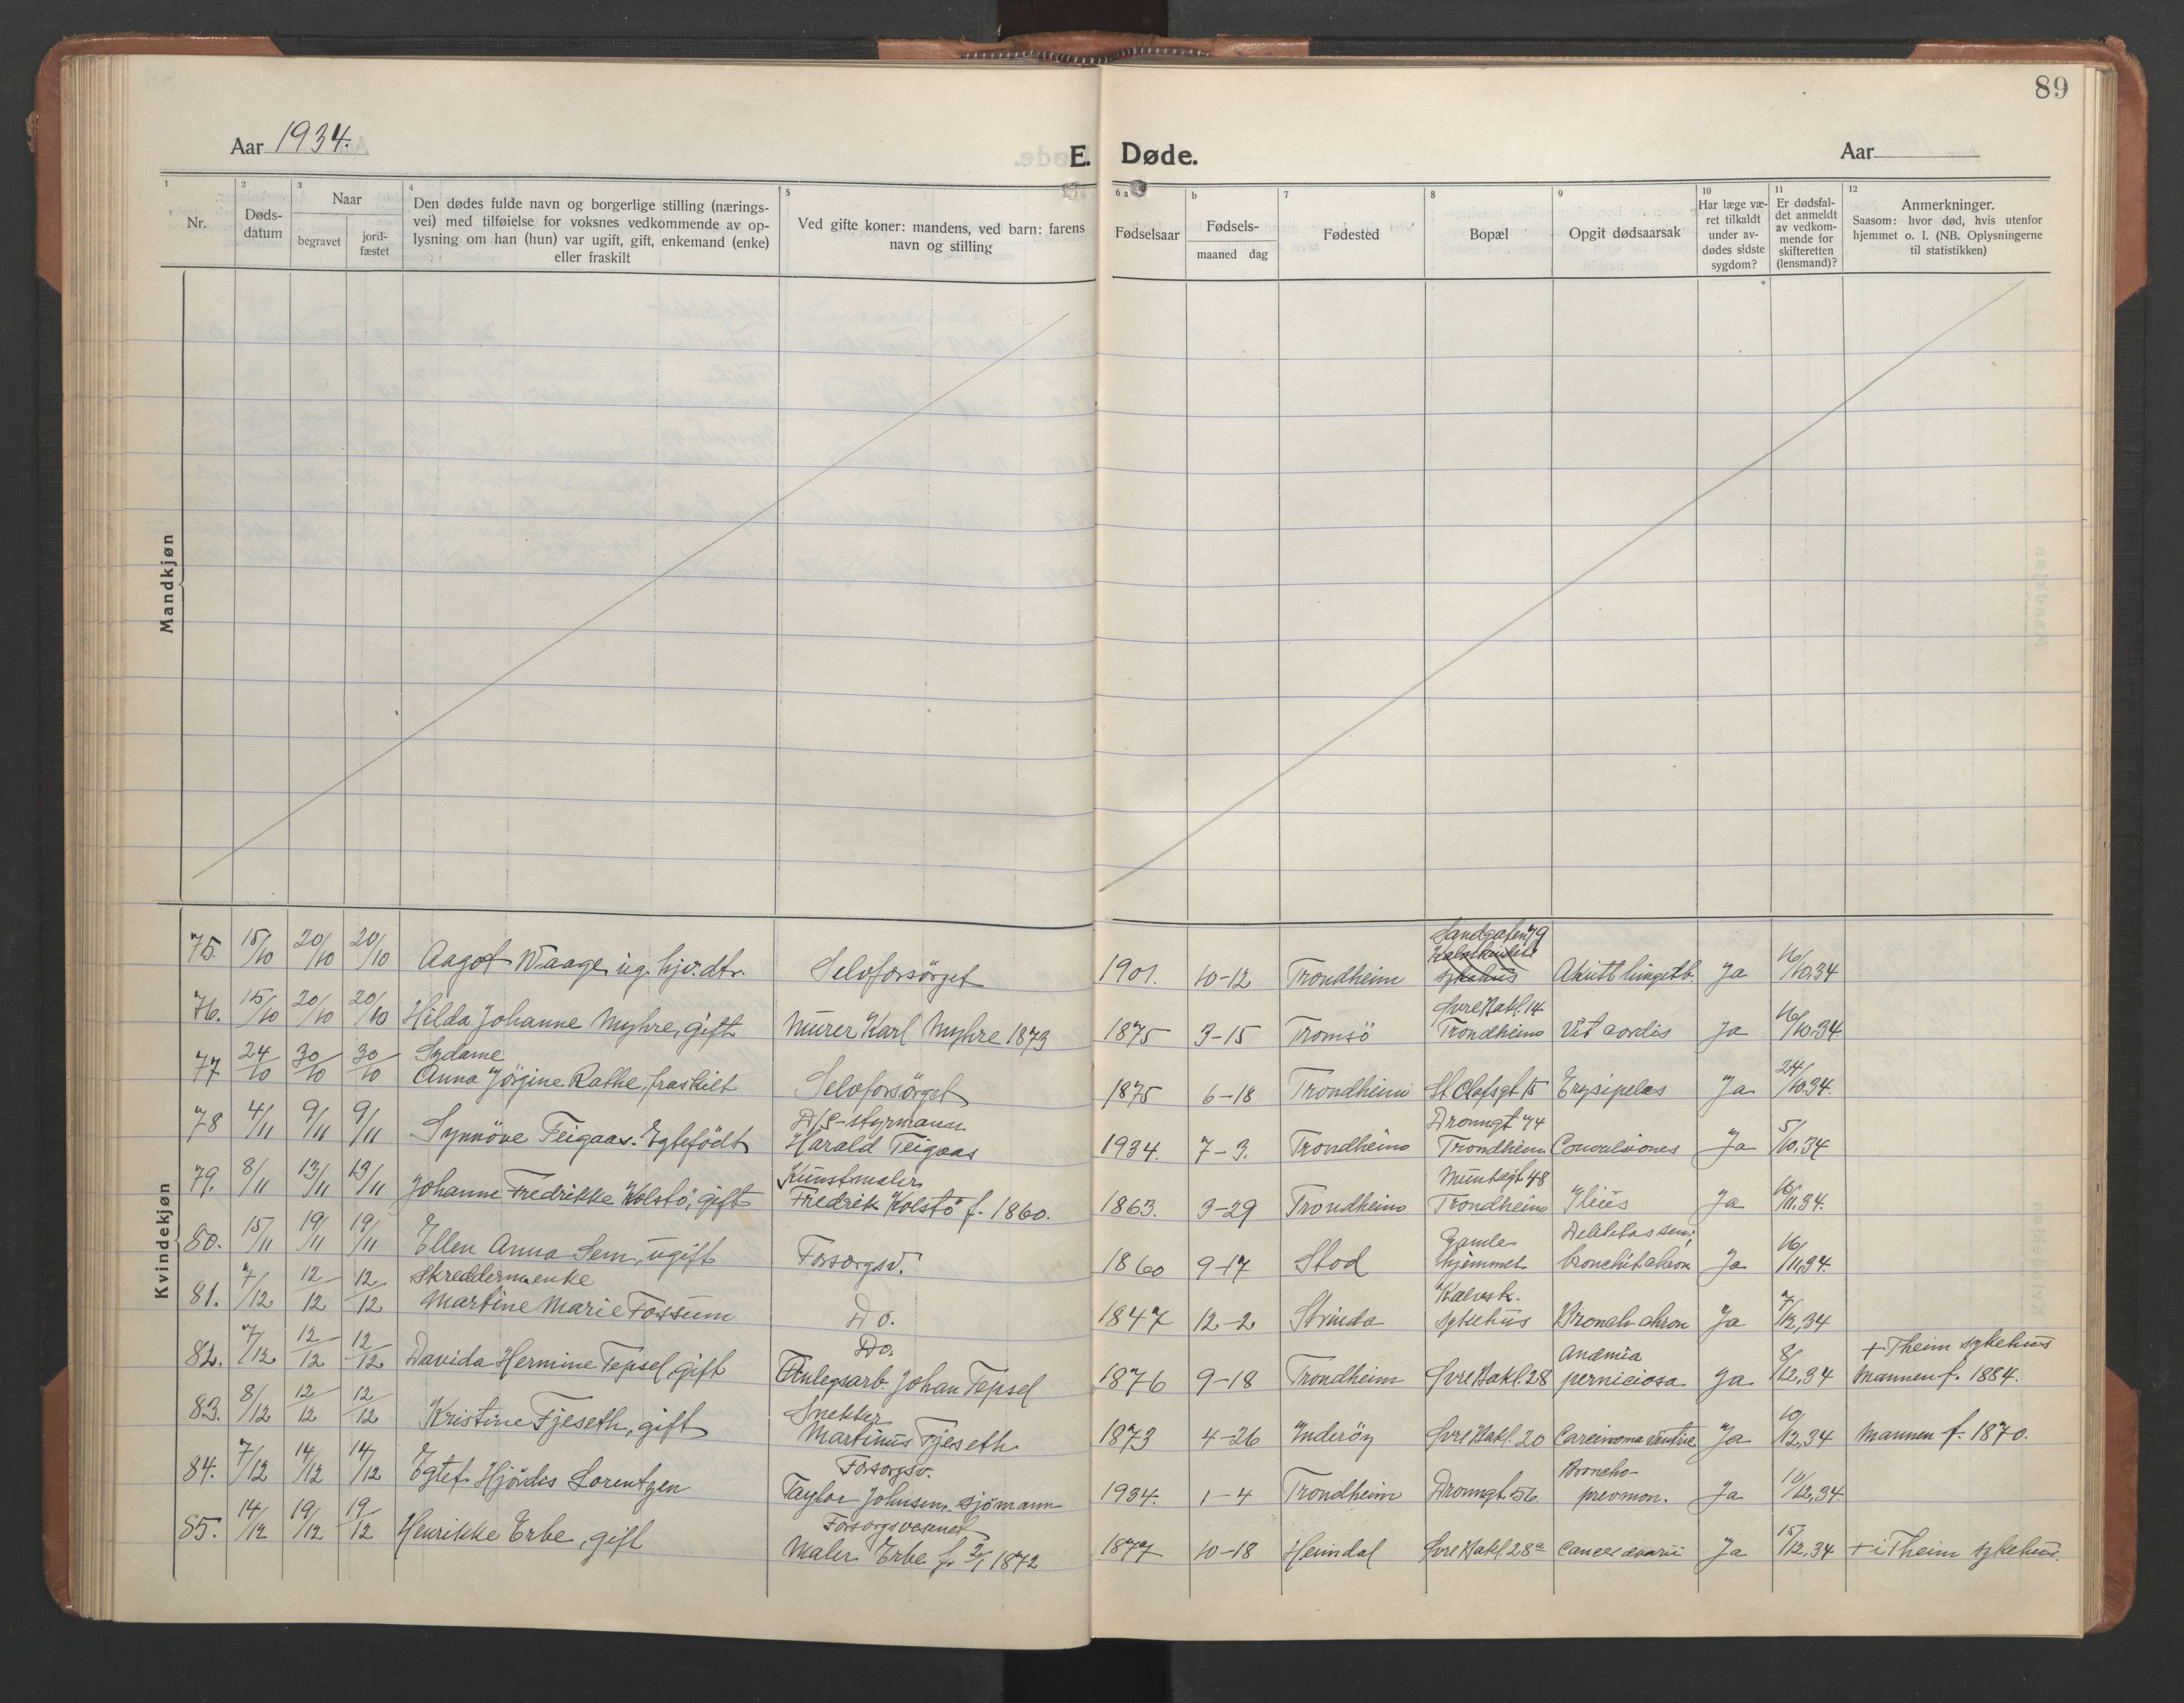 89
Aar 1934.
E. Døde.
Aar
1 2 3 4 5 6 a b 7 8 9 10 11 12
Nr.
Døds-
datum
Naar
begravet
jord-
fæstet
Den dødes fulde navn og borgerlige stilling (nærings-
vei) med tilføielse for voksnes vedkommende av op-
lysning om han (hun) var ugift, gift, enkemand (enke)
eller fraskilt
Ved gifte koner: mandens, ved barn: farens
navn og stilling
Fødselsaar
Fødsels-
maaned dag
Fødested
Bopæl
Opgit dødsaarsak
Har læge væ-
ret tilkaldt
under av-
dødes sidste
sygdom?
Er dødsfal-
det anmeldt
av vedkom-
mende for
skifteretten
(lensmand)?
Anmerkninger.
Saasom: hvor død, hvis utenfor
hjemmet o. l. (NB. Oplysningerne
til statistikken)
Mandkjøn
Kvindekjøn
Sandgaten 79
75. 15/10 20/10 20/10 Aagot Waage, ug. hjv. dtr. Selvforsörget 1901. 10-12 Trondheim sykehus Akutt lungetb. Ja 16/10.34
Övre Bakl. 14
76. 15/10 20/10 20/10 Hilda Johanne Myhre, gift Murer Karl Myhre 1873 1875 3-15 Tromsö Trondheim Vit. cordis Ja 16/10.34.
Sydame
77 24/10 30/10 30/10 Anna Jörgine Rathe, fraskilt Selvforsörget 1875 6-18 Trondheim St. Olafsgt. 15 Erysipelas Ja 24/10.34.
D/S-styrmann Dronngt 74
78 4/11 9/11 9/11 Synnöve Teigaas. Egtefödt Harald Teigaas 1934. 7-3. Trondheim Trondheim Convulsiones Ja 5/10.34
Kunstmaler Munkegt 48
79. 8/11 13/11 13/11 Johanne Fredrikke Kolstö, gift Fredrik Kolstö f. 1860. 1863. 3-29 Trondheim Trondheim Ileus Ja 10/11.34.
Gamle Debilitas seni;
80. 15/11 19/11 19/11 Ellen Anna Sem, ugift Forsorgsv. 1860 9-17 Stod hjemmet bronchit chron Ja 16/11.34.
Skredderm. enke Kalvsk.
81. 7/12 12/12 12/12 Martine Marie Fossum Do. 1847 12-2 Strinda sykehus Bronch. chron Ja 7/12.34
Do. Anæmia + Theim sykehus
82. 7/12 12/12 12/12 Davida Hermine Tepsel, gift Anlegsarb. Johan Tepsel 1876 9-18 Trondheim Övre Bakl. 28 perniciosa Ja 8/12.34 Mannen f. 1884.
Snekker
83. 8/12 12/12 12/12 Kristine Fjeseth, gift Martinus Fjeseth 1873 4-26 Inderöy Övre Bakl. 20 Carcinoma ventric Ja 10/12.34 Mannen f. 1870.
Forsorgsv. Broncho-
84. 7/12 14/12 14/12 Egtef. Hjördis Lorentzen Taylor Johnsen. sjömann 1934. 1-4 Trondheim Dronngt. 56 pnevmon. Ja 10/12.34.
Forsorgsvesenet
85. 14/12 19/12 19/12 Henrikke Erbe, gift Maler Erbe f. 2/1 1872 1877 10-18 Heimdal Övre Bakl. 28a Cancer ovarii Ja 15/12.34 + i Theim sykehus.